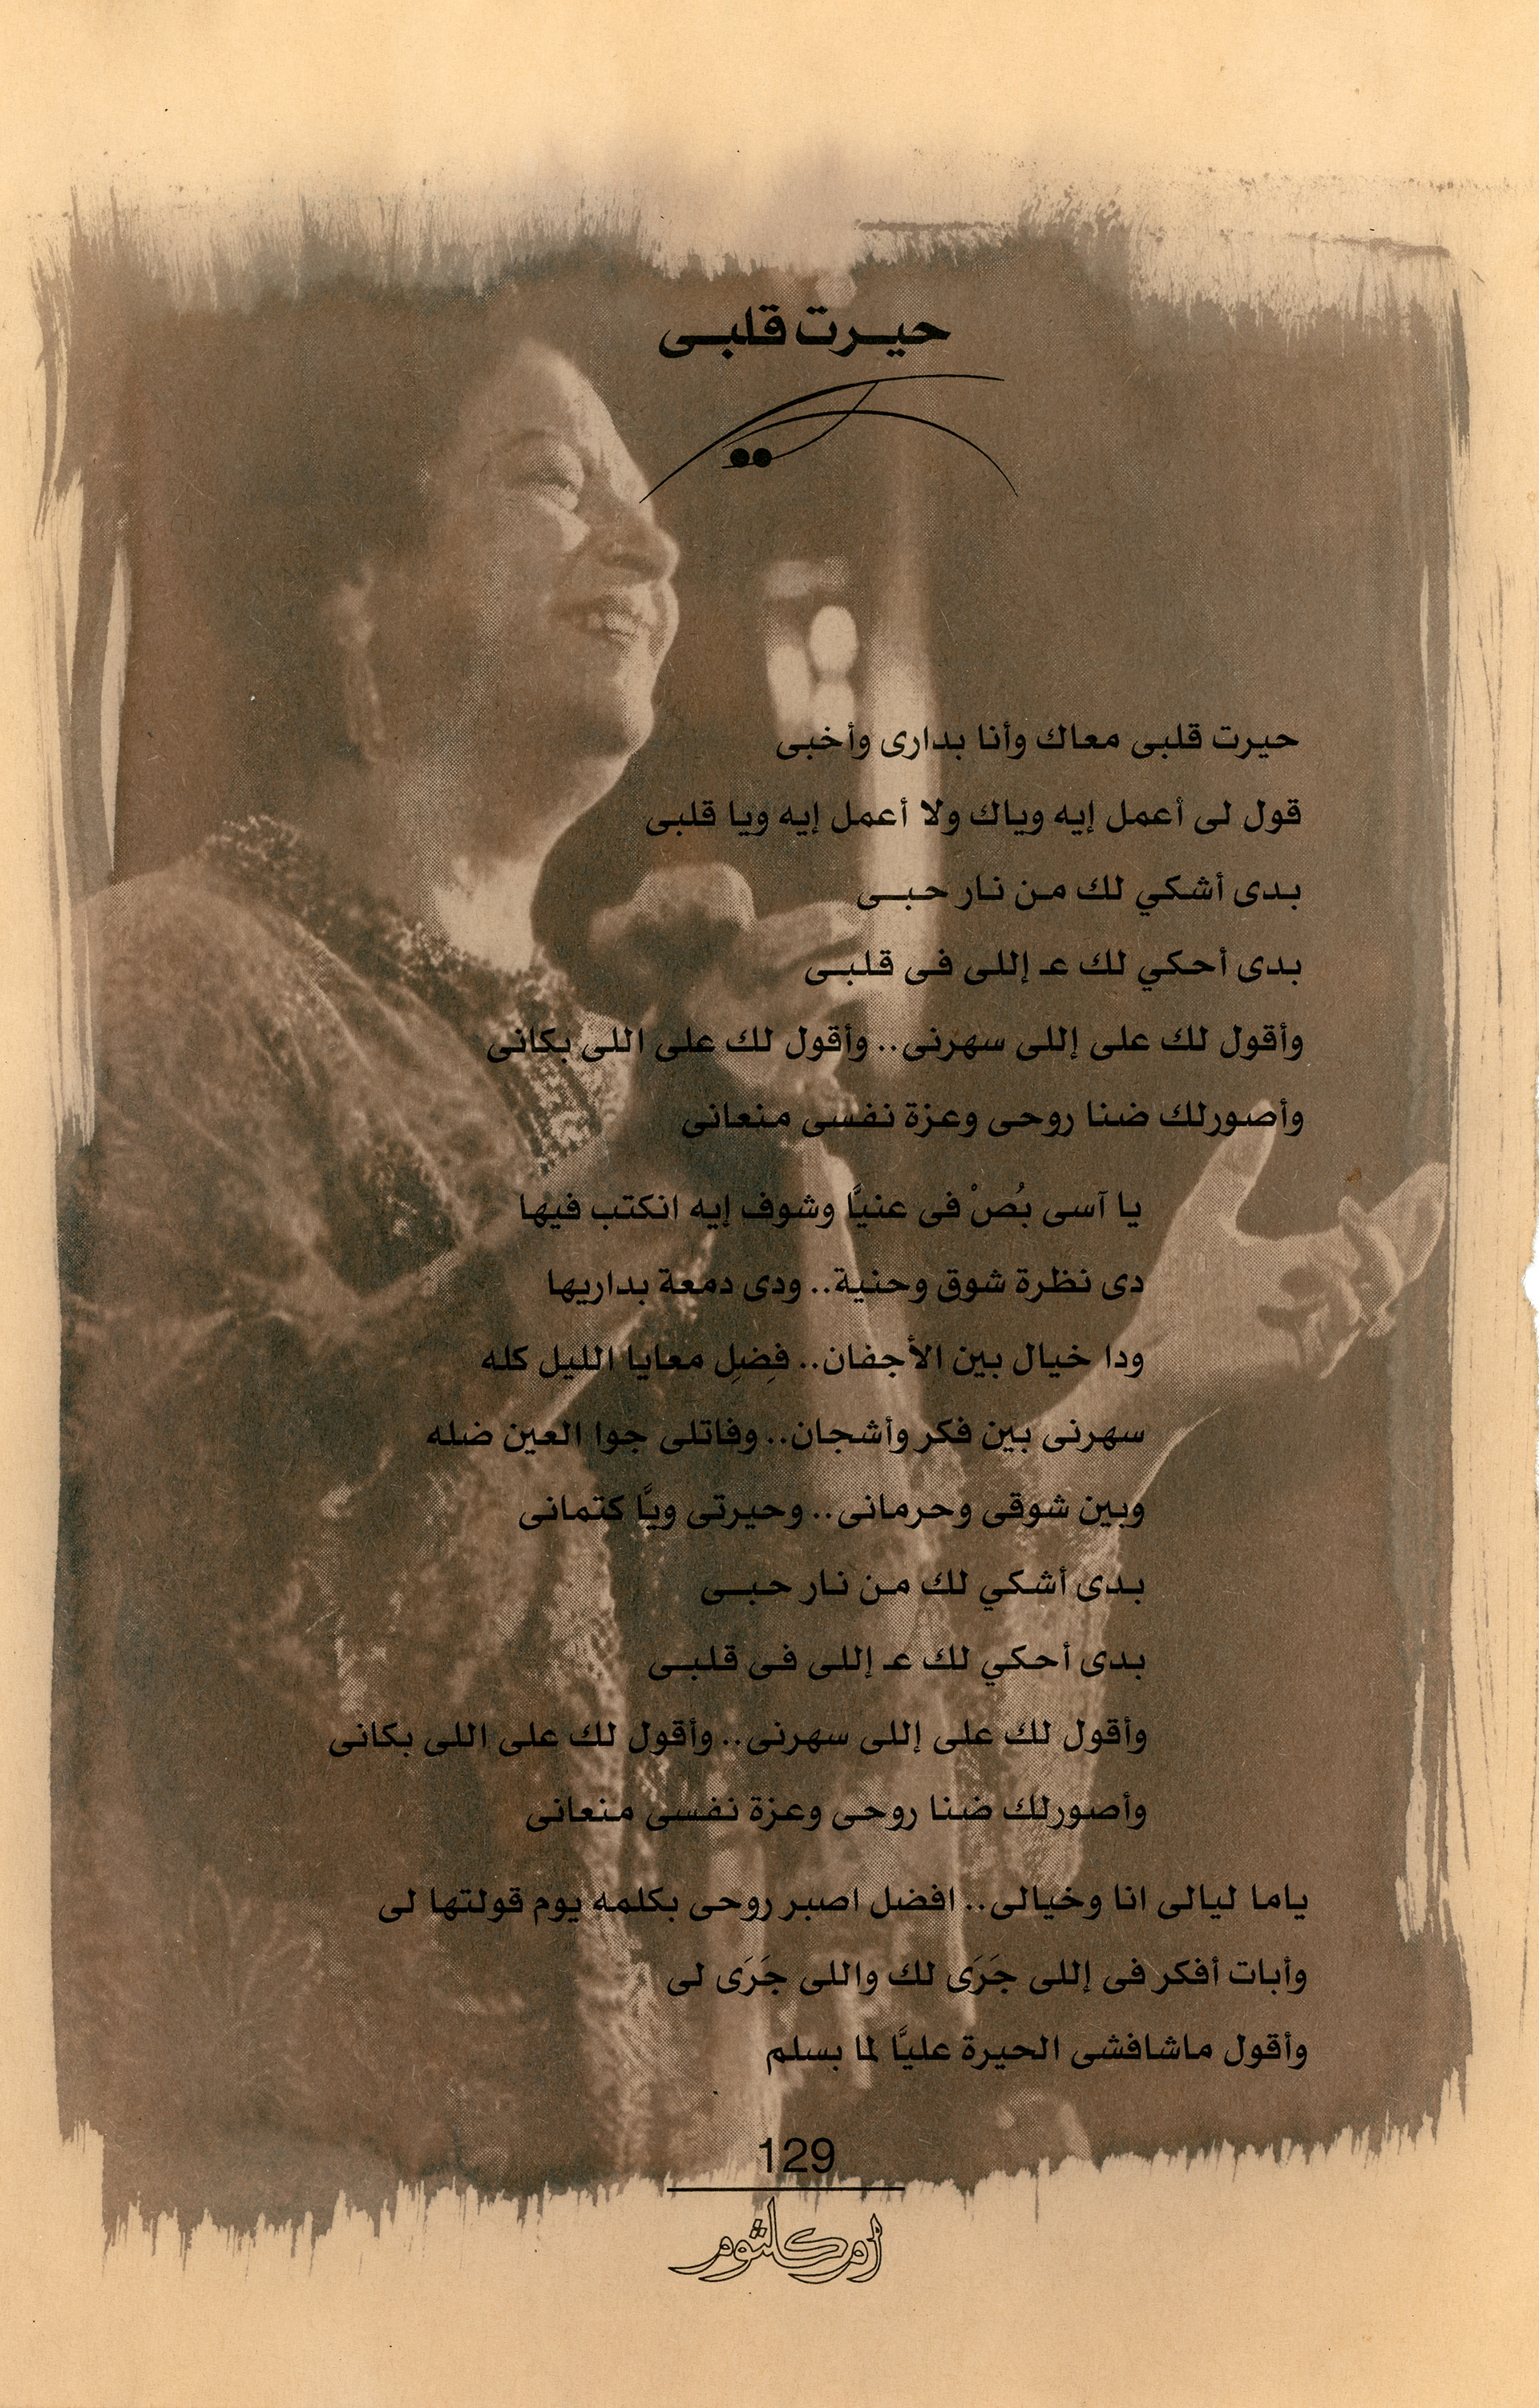 حيرت قلبى
حيرت قلبى معاك وأنا بدارى وأخبى
قول لى أعمل إيه وياك ولا أعمل إيه ويا قلبى
بدى أشكي لك من نار حبى
بدى أحكي لك عـ إللى فى قلبى
وأقول لك على إللى سهرنى.. وأقول لك على اللى بكانى
وأصورلك ضنا روحى وعزة نفسى منعانى
يا آسى بُصْ فى عنيَّا وشوف إيه انكتب فيها
دى نظرة شوق وحنية.. ودى دمعة بداريها
ودا خيال بين الأجفان.. فِضِل معايا الليل كله
سهرنى بين فكر وأشجان.. وفاتلى جوا العين ضله
وبين شوقى وحرمانى.. وحيرتى ويَّا كتمانى
بدى أشكي لك من نار حبى
بدى أحكي لك عـ إللى فى قلبى
وأقول لك على إللى سهرنى.. وأقول لك على اللى بكانى
وأصورلك ضنا روحى وعزة نفسى منعانى
ياما ليالى انا وخيالى.. افضل اصبر روحى بكلمه يوم قولتها لى
وأبات أفكر فى إللى جَرَى لك واللى جَرَى لى
وأقول ماشافشى الحيرة عليَّا لما بسلم
129
أم كلثوم